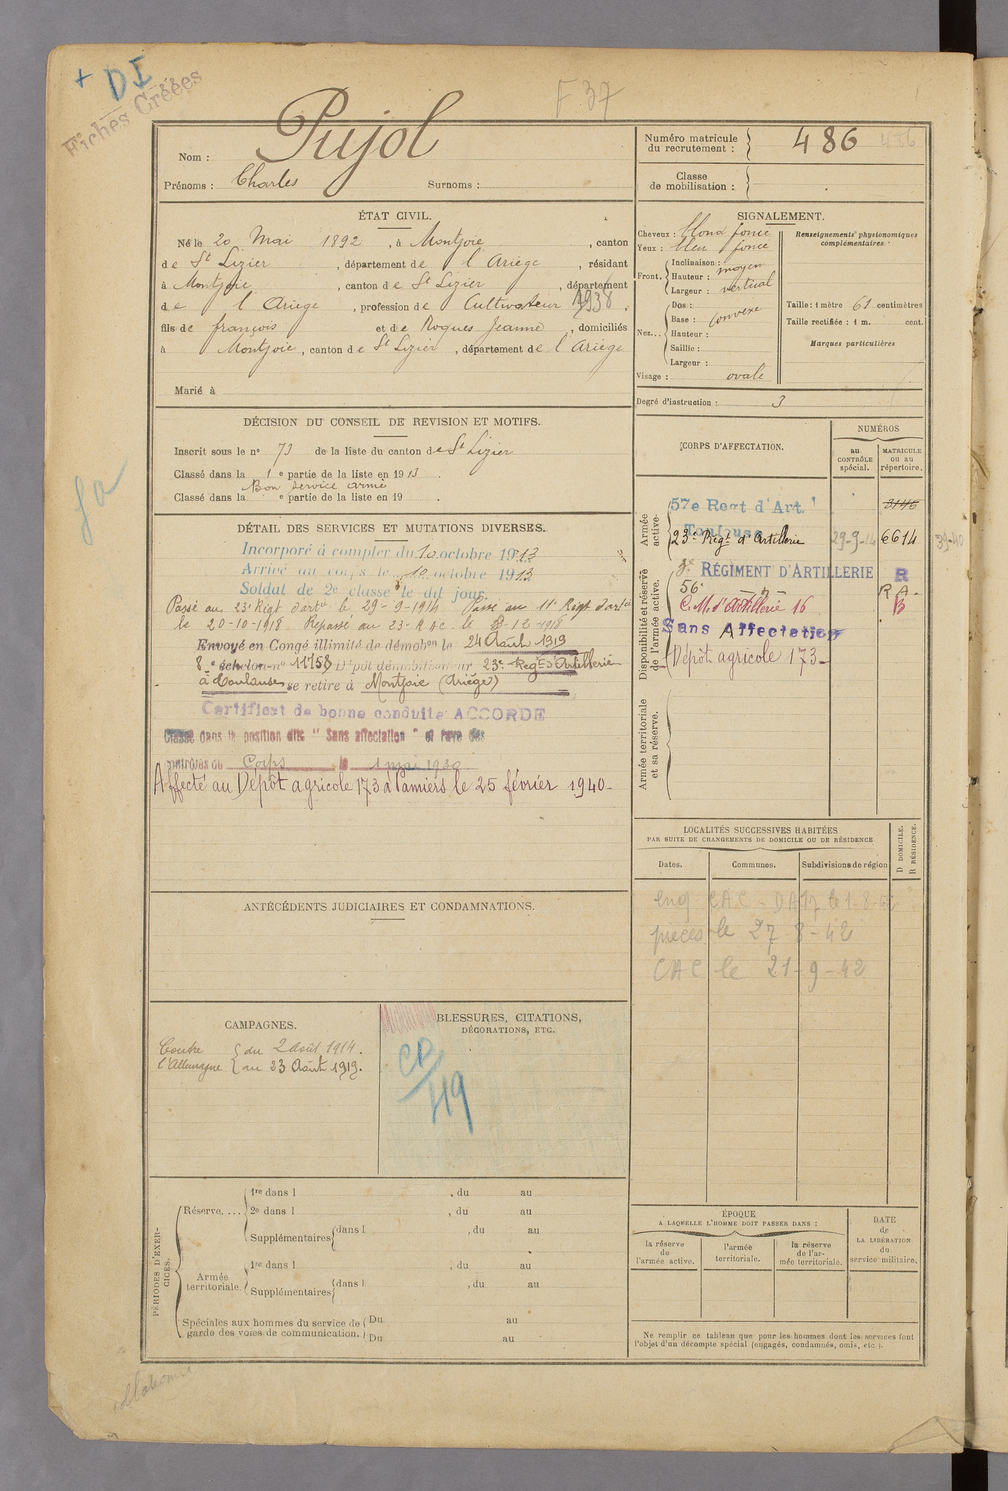 + DI
Fiches Créées
F 37
Nom : Pujol
Prénoms : Charles Surnoms :
Numéro matricule du recrutement : 486 486
Classe de mobilisation :
ÉTAT CIVIL.
Né le 20 Mai 1892, à Montjoie, canton
de St Lizier, département de l'Ariège, résidant
à Montjoie, canton de St Lizier, département
de l'Ariège, profession de Cultivateur 1938.
fils de françois et de Roques Jeanne, domiciliés
à Montjoie, canton de St Lizier, département de l'Ariège
Marié à
SIGNALEMENT.
Cheveux : blond foncé
Yeux : bleu foncé
Front. Inclinaison :
Hauteur : moyen
Largeur : vertical
Nez... Dos :
Base : convexe
Hauteur :
Saillie :
Largeur :
Visage : ovale
Renseignements physionomiques complémentaires :
Taille : 1 mètre 61 centimètres
Taille rectifiée : 1 m. cent.
Marques particulières
Degré d'instruction : 3
DÉCISION DU CONSEIL DE REVISION ET MOTIFS.
Inscrit sous le no 73 de la liste du canton de St Lizier
Classé dans la 1e partie de la liste en 1913.
Bon service armé
Classé dans la e partie de la liste en 19 .
fa
DÉTAIL DES SERVICES ET MUTATIONS DIVERSES.
Incorporé à compter du 10 octobre 1913
Arrivé au corps le 10 octobre 1913
Soldat de 2e classe le dit jour.
Passé au 23e Régt d'artie le 29-9-1914 Passé au 11e Régt d'artie
le 20-10-1918 Repassé au 23e R AC le 8-12-1918
Envoyé en Congé illimité de démobon le 24 Août 1919
8e échelon no 11758 Dépôt démobilisateur 23e Régt d'Artillerie
à Toulouse se retire à Montjoie (Ariège)
Certificat de bonne conduite ACCORDÉ
Classé dans la position dite "Sans affectation" et rayé des
contrôles du Corps le 1 mai 1930
Affecté au Dépôt agricole 173 à Pamiers le 25 février 1940-
CORPS D'AFFECTATION.
NUMÉROS
au CONTRÔLE spécial.
MATRICULE ou au répertoire.
Armée active.
57e Regt d'Art.
Toulouse
23e Régt d'Artillerie 29-9-14 6614 39-40
Disponibilité et réserve de l'armée active.
RÉGIMENT D'ARTILLERIE R
56e R A-
C.M. d'Artillerie 16 B
Sans Affectation
Dépôt agricole 173-
Armée territoriale et sa réserve.
LOCALITÉS SUCCESSIVES HABITÉES
PAR SUITE DE CHANGEMENTS DE DOMICILE OU DE RÉSIDENCE
D DOMICILE.
R RÉSIDENCE.
Dates. Communes. Subdivisions de région
enq CAC - DA17 le 1-8-42
pièces le 27-8-42
CAC le 21-9-42
ANTÉCÉDENTS JUDICIAIRES ET CONDAMNATIONS.
CAMPAGNES.
Contre l'Allemagne
du 2 Août 1914.
au 23 Août 1919.
BLESSURES, CITATIONS,
DÉCORATIONS, ETC.
CD/419
PÉRIODES D'EXERCICES.
Réserve....
1re dans l , du au
2e dans l , du au
Supplémentaires dans l , du au
Armée territoriale.
1re dans l , du au
Supplémentaires dans l , du au
Spéciales aux hommes du service de garde des voies de communication.
Du au
Du au
ÉPOQUE
A LAQUELLE L'HOMME DOIT PASSER DANS :
la réserve de l'armée active.
l'armée territoriale.
la réserve de l'armée territoriale.
DATE de LA LIBÉRATION du service militaire.
Ne remplir ce tableau que pour les hommes dont les services font
l'objet d'un décompte spécial (engagés, condamnés, omis, etc.).